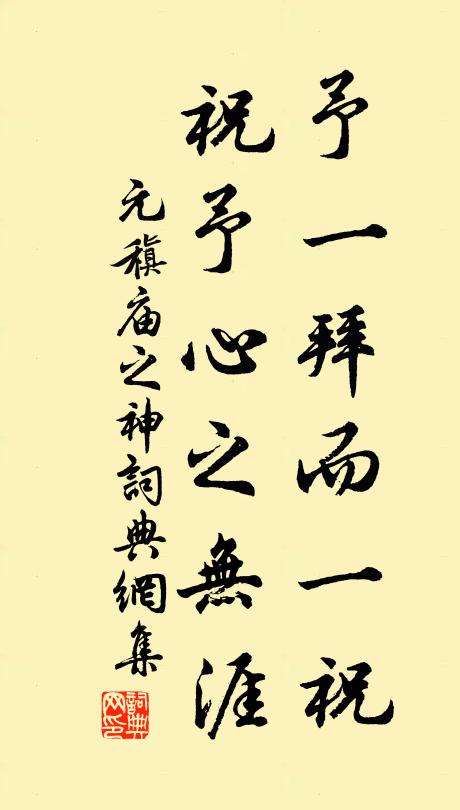 予一拜而一祝
祝予心之無涯
元稹庙之神詞典網集
詞典网印